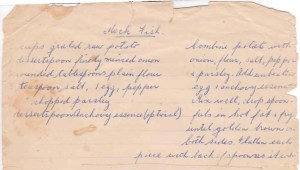 Mock Fish.
cups grated raw potato
dessertspoon finely minced onion
rounded tablespoons plain flour
teaspoon salt, 1 egg, pepper
chopped parsley
dessertspoon anchovy essence (optional)
Combine potato with
onion, flour, salt, pepper
& parsley. Add
egg & anchovy essence
Mix well, drop spoon-
fuls in hot fat & fry
until golden brown on
both sides. Flatten each
piece with back of spoon